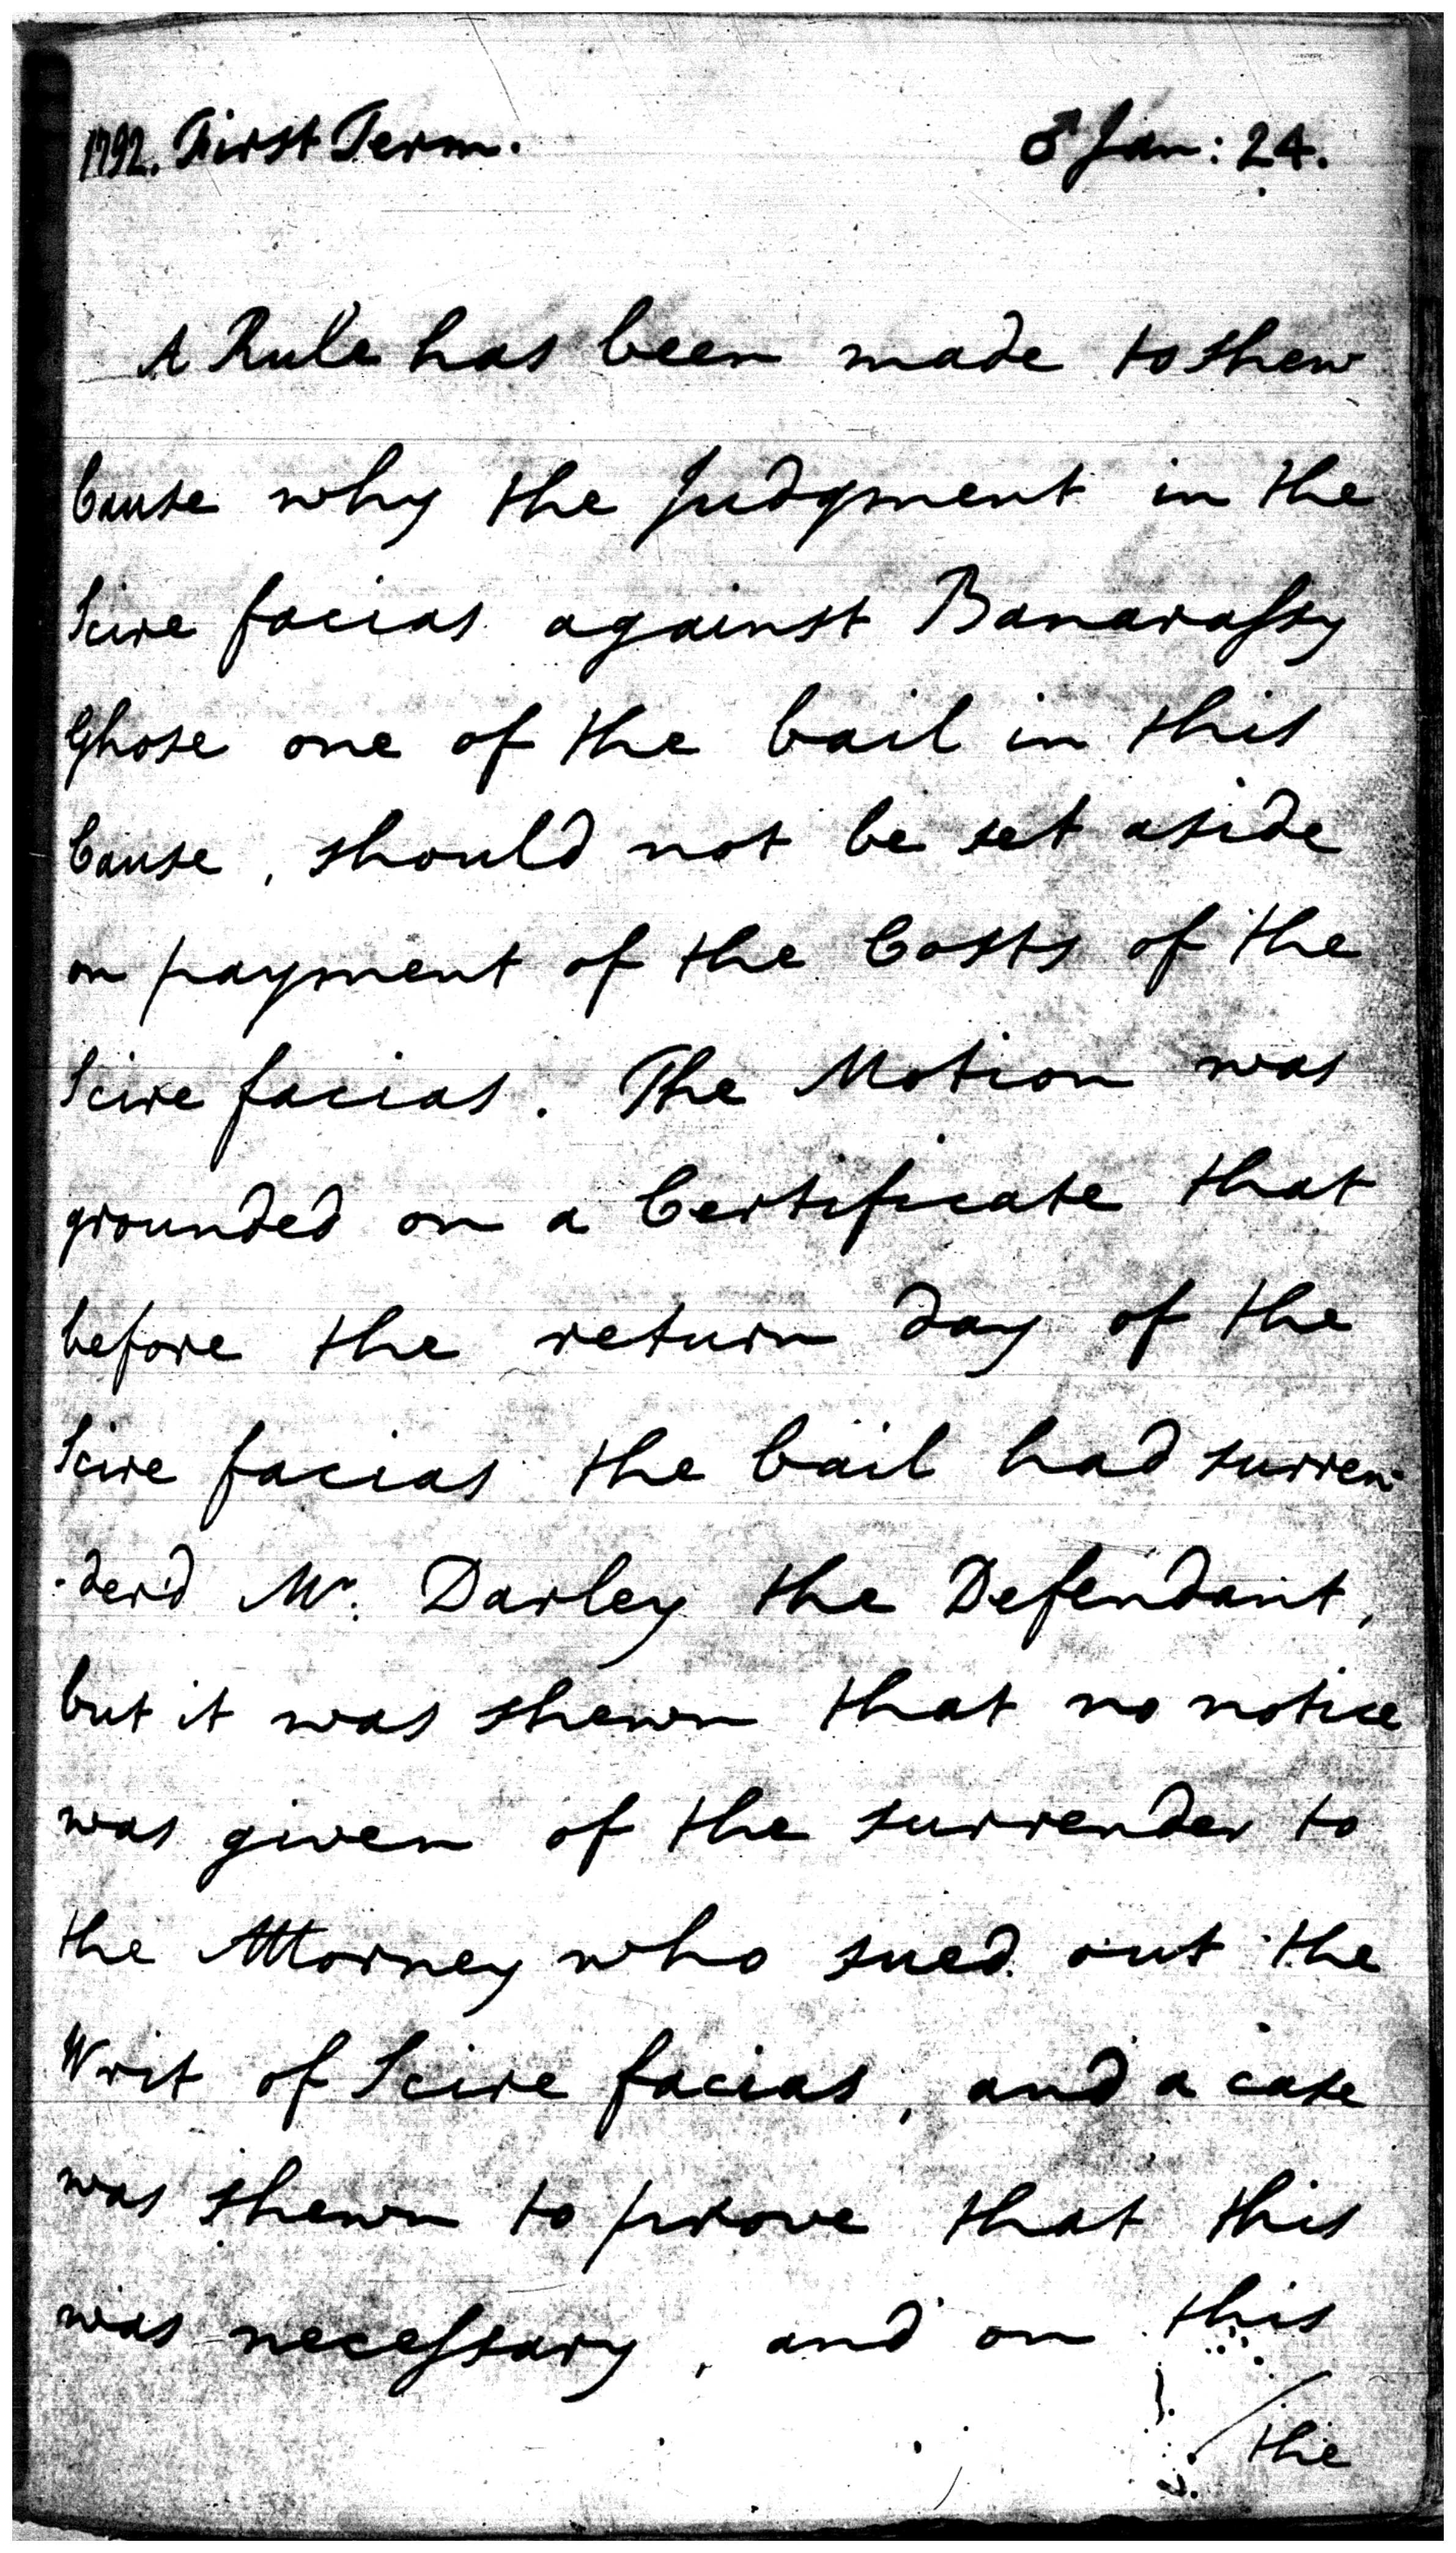 1792. First Term. ♂ Jan: 24.
A Rule has been made to shew
Cause why the Judgment in the
Scire facias against Banaraſsy
Ghose one of the bail in this
Cause, should not be set aside
on payment of the Costs of the
Scire facias. The Motion was
grounded on a Certificate that
before the return day of the
Scire facias the bail had surren-
-der'd Mr. Darley the Defendant,
but it was shewn that no notice
was given of the surrender to
the Attorney who sued out the
Writ of Scire facias, and a case
was shewn to prove that this
was neceſsary, and on this
/the